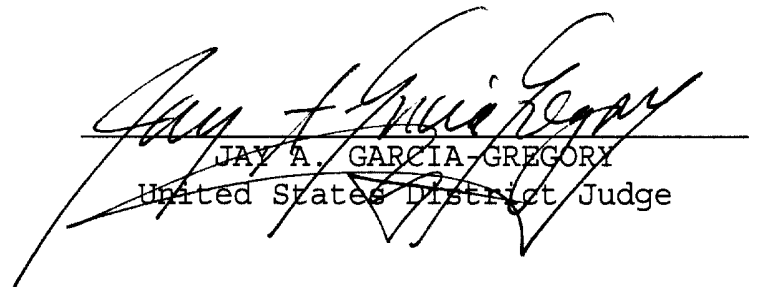 Jay A. Garcia Gregory
JAY A. GARCIA-GREGORY
United States District Judge